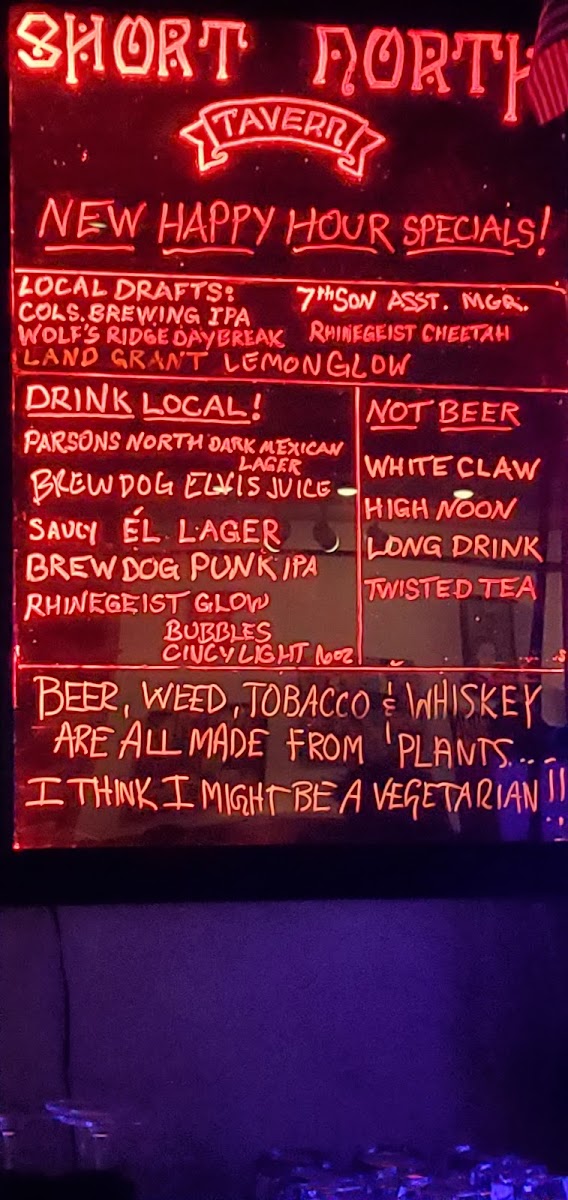 SHORT NORTH
TAVERN
NEW HAPPY HOUR SPECIALS!
LOCAL DRAFTS:
COLS. BREWING IPA
WOLF'S RIDGE DAYBREAK
LAND GRANT LEMON GLOW
7th SON ASST. MGR.
RHINEGEIST CHEETAH
DRINK LOCAL!
PARSONS NORTH DARK MEXICAN
LAGER
BREWDOG ELVIS JUICE
SAUCY ÉL LAGER
BREWDOG PUNK IPA
RHINEGEIST GLOW
BUBBLES
CINCY LIGHT 16oz
NOT BEER
WHITE CLAW
HIGH NOON
LONG DRINK
TWISTED TEA
BEER, WEED, TOBACCO & WHISKEY
ARE ALL MADE FROM PLANTS...
I THINK I MIGHT BE A VEGETARIAN!!